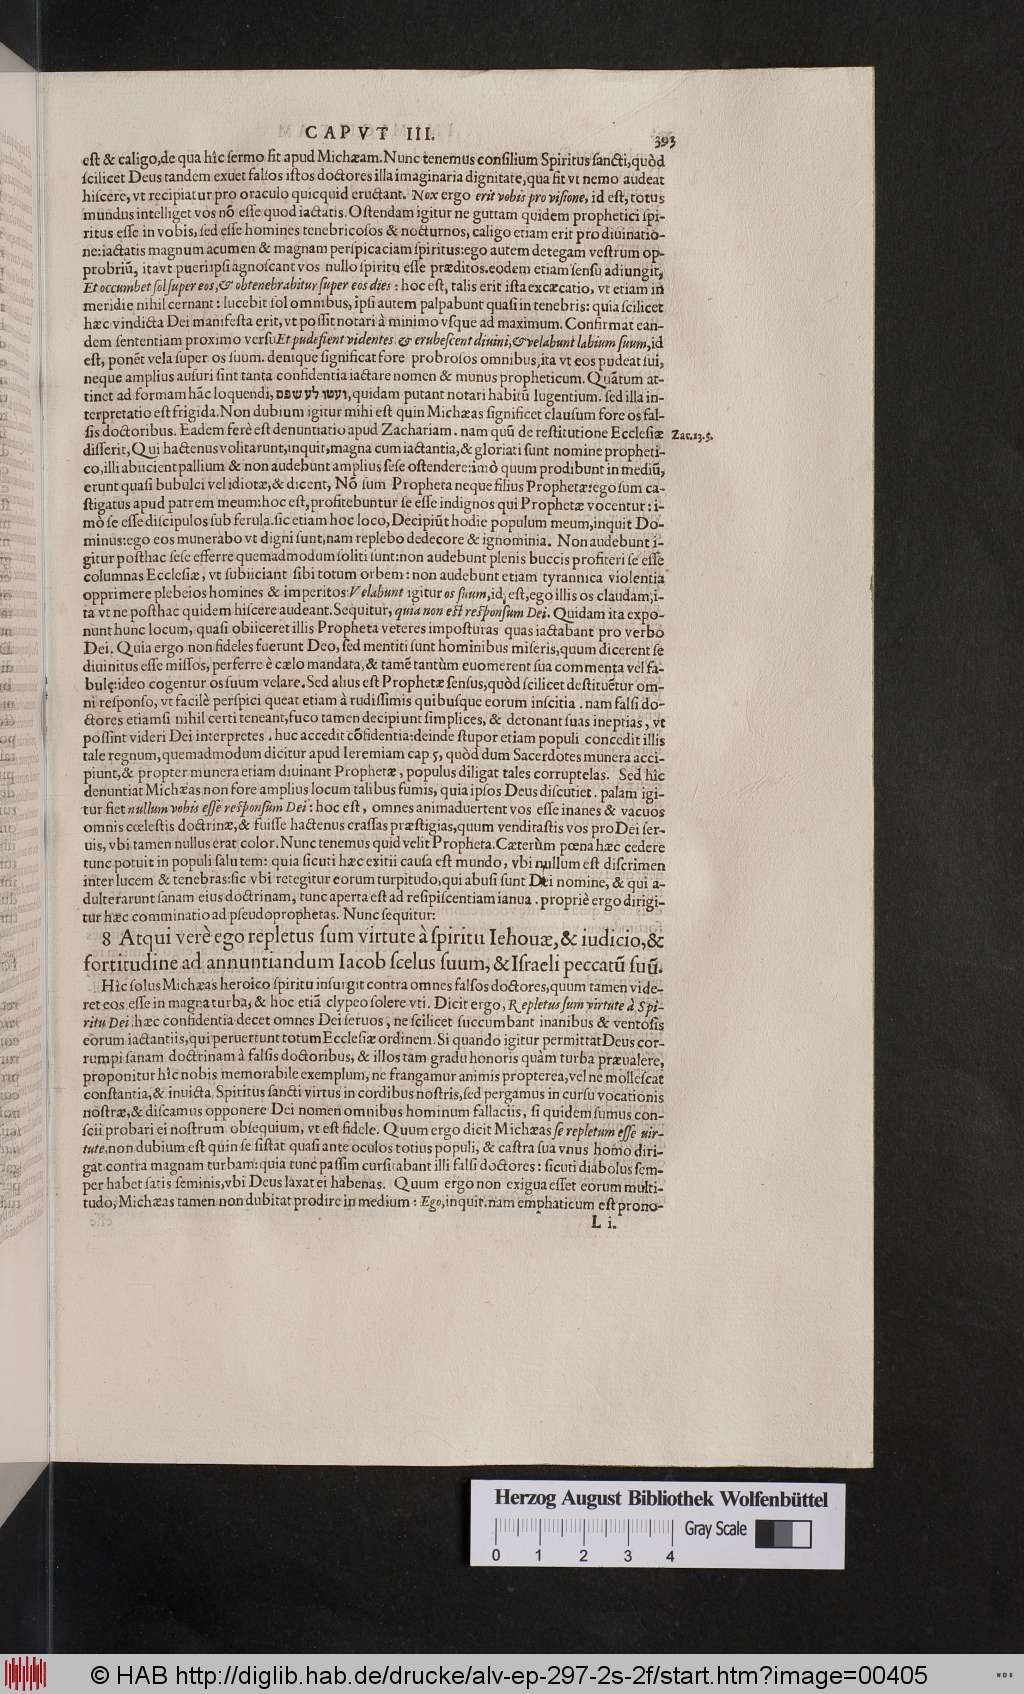 CAPVT III.
393
est & caligo, de qua hîc sermo fit apud Michæam. Nunc tenemus consilium Spiritus sancti, quòd
scilicet Deus tandem exuet falsos istos doctores illa imaginaria dignitate, qua fit vt nemo audeat
hiscere, vt recipiatur pro oraculo quicquid eructant. Nox ergo erit vobis pro visione, id est, totus
mundus intelliget vos nõ esse quod iactatis. Ostendam igitur ne guttam quidem prophetici spi-
ritus esse in vobis, sed esse homines tenebricosos & nocturnos, caligo etiam erit pro diuinatio-
ne: iactatis magnum acumen & magnam perspicaciam spiritus: ego autem detegam vestrum op-
probriũ, itavt pueri ipsi agnoscant vos nullo spiritu esse præditos. eodem etiam sensu adiungit,
Et occumbet sol super eos, & obtenebrabitur super eos dies: hoc est, talis erit ista excæcatio, vt etiam in
meridie nihil cernant: lucebit sol omnibus, ipsi autem palpabunt quasi in tenebris: quia scilicet
hæc vindicta Dei manifesta erit, vt possit notari à minimo vsque ad maximum. Confirmat ean-
dem sententiam proximo versu Et pudefient videntes & erubescent diuini, & velabunt labium suum, id
est, ponẽt vela super os suum. denique significat fore probrosos omnibus, ita vt eos pudeat sui,
neque amplius ausuri sint tanta confidentia iactare nomen & munus propheticum. Quãtum at-
tinet ad formam hãc loquendi, ועטו לע שפם, quidam putant notari habitũ lugentium. sed illa in-
terpretatio est frigida. Non dubium igitur mihi est quin Michæas significet clausum fore os fal-
sis doctoribus. Eadem ferè est denuntiatio apud Zachariam. nam quũ de restitutione Ecclesiæ
Zac. 13. 5.
disserit, Qui hactenus volitarunt, inquit, magna cum iactantia, & gloriati sunt nomine propheti-
co, illi abiicient pallium & non audebunt amplius sese ostendere: imò quum prodibunt in mediũ,
erunt quasi bubulci vel idiotæ, & dicent, Nõ sum Propheta neque filius Prophetæ: ego sum ca-
stigatus apud patrem meum: hoc est, profitebuntur se esse indignos qui Prophetæ vocentur: i-
mò se esse discipulos sub ferula. sic etiam hoc loco, Decipiũt hodie populum meum, inquit Do-
minus: ego eos munerabo vt digni sunt, nam replebo dedecore & ignominia. Non audebunt i-
gitur posthac sese efferre quemadmodum soliti sunt: non audebunt plenis buccis profiteri se esse
columnas Ecclesiæ, vt subiiciant sibi totum orbem: non audebunt etiam tyrannica violentia
opprimere plebeios homines & imperitos: Velabunt igitur os suum, id est, ego illis os claudam, i-
ta vt ne posthac quidem hiscere audeant. Sequitur, quia non est responsum Dei. Quidam ita expo-
nunt hunc locum, quasi obiiceret illis Propheta veteres imposturas quas iactabant pro verbo
Dei. Quia ergo non fideles fuerunt Deo, sed mentiti sunt hominibus miseris, quum dicerent se
diuinitus esse missos, perferre è cælo mandata, & tamẽ tantùm euomerent sua commenta vel fa-
bulę: ideo cogentur os suum velare. Sed alius est Prophetæ sensus, quòd scilicet destituẽtur om-
ni responso, vt facilè perspici queat etiam à rudissimis quibusque eorum inscitia. nam falsi do-
ctores etiamsi nihil certi teneant, fuco tamen decipiunt simplices, & detonant suas ineptias, vt
possint videri Dei interpretes. huc accedit cõfidentia: deinde stupor etiam populi concedit illis
tale regnum, quemadmodum dicitur apud Ieremiam cap 5, quòd dum Sacerdotes munera acci-
piunt, & propter munera etiam diuinant Prophetæ, populus diligat tales corruptelas. Sed hîc
denuntiat Michæas non fore amplius locum talibus fumis, quia ipsos Deus discutiet. palam igi-
tur fiet nullum vobis esse responsum Dei: hoc est, omnes animaduertent vos esse inanes & vacuos
omnis cœlestis doctrinæ, & fuisse hactenus crassas præstigias, quum venditastis vos pro Dei ser-
uis, vbi tamen nullus erat color. Nunc tenemus quid velit Propheta. Cæterùm pœna hæc cedere
tunc potuit in populi salutem: quia sicuti hæc exitii causa est mundo, vbi nullum est discrimen
inter lucem & tenebras: sic vbi retegitur eorum turpitudo, qui abusi sunt Dei nomine, & qui a-
dulterarunt sanam eius doctrinam, tunc aperta est ad resipiscentiam ianua. propriè ergo dirigi-
tur hæc comminatio ad pseudoprophetas. Nunc sequitur:
8 Atqui verè ego repletus sum virtute à spiritu Iehouæ, & iudicio, &
fortitudine ad annuntiandum Iacob scelus suum, & Israeli peccatũ suũ.
Hîc solus Michæas heroico spiritu insurgit contra omnes falsos doctores, quum tamen vide-
ret eos esse in magna turba, & hoc etiã clypeo solere vti. Dicit ergo, Repletus sum virtute à Spi-
ritu Dei: hæc confidentia decet omnes Dei seruos, ne scilicet succumbant inanibus & ventosis
eorum iactantiis, qui peruertunt totum Ecclesiæ ordinem. Si quando igitur permittat Deus cor-
rumpi sanam doctrinam à falsis doctoribus, & illos tam gradu honoris quàm turba præualere,
proponitur hîc nobis memorabile exemplum, ne frangamur animis propterea, vel ne mollescat
constantia, & inuicta Spiritus sancti virtus in cordibus nostris, sed pergamus in cursu vocationis
nostræ, & discamus opponere Dei nomen omnibus hominum fallaciis, si quidem sumus con-
scii probari ei nostrum obsequium, vt est fidele. Quum ergo dicit Michæas se repletum esse vir-
tute, non dubium est quin se sistat quasi ante oculos totius populi, & castra sua vnus homo diri-
gat contra magnam turbam: quia tunc passim cursitabant illi falsi doctores: sicuti diabolus sem-
per habet satis seminis, vbi Deus laxat ei habenas. Quum ergo non exigua esset eorum multi-
tudo, Michæas tamen non dubitat prodire in medium: Ego, inquit. nam emphaticum est prono-
L i.
Herzog August Bibliothek Wolfenbüttel
Gray Scale
0 1 2 3 4
© HAB http://diglib.hab.de/drucke/alv-ep-297-2s-2f/start.htm?image=00405